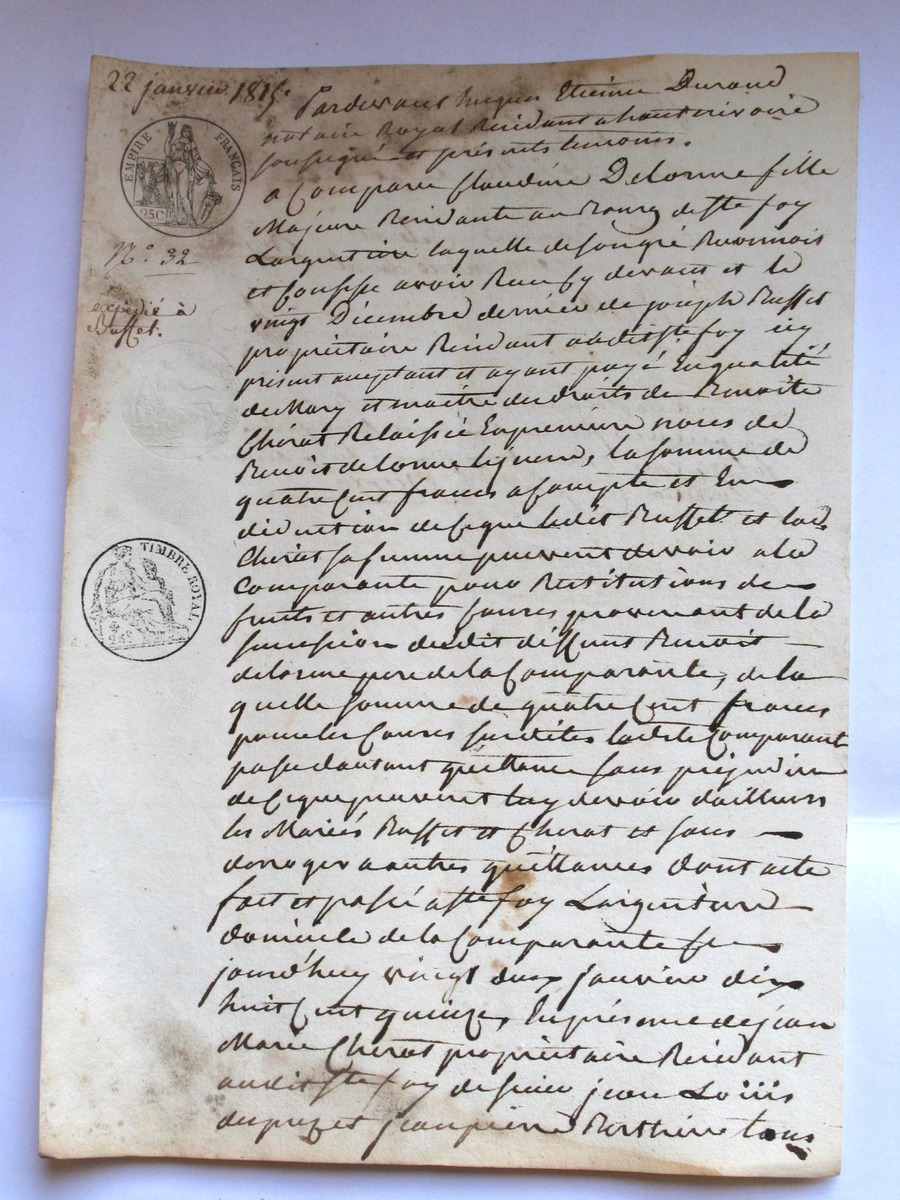 22 janvier 1815.
Pardevant hugues Etienne Durand
notaire Royal Résidant a hauterivoire
soussigné et présents temoins.
EMPIRE FRANÇAIS
25C
a Comparu Claudine Delorme fille
Majeure Residante au Bourg de ste foy
Largentiere laquelle de son gré Reconnais
N° 32
et Confesse avoir Recu cy devant et le
vingt Décembre dernier de joseph Basset
expédié à
Basset.
propriétaire Residant audit ste foy icy
présent acceptant et ayant payé En qualité
de Mary et maitre des droits de Benoite
Cherat Relaissée En premiere noces de
Benoit delorme ligneur, la somme de
quatre Cent francs a Compte et En
diduction de Ce que ledit Basset et lad.
Cherat sa femme peuvent devoir a la
TIMBRE ROYAL
Comparante pour Restitutions de
fruits et autres Causes provenant de la
succession dudit deffunt Benoit
delorme pere de la Comparante, de la
quelle somme de quatre Cent francs
pour les Causes susdites ladite Comparant
passe d'autant quittance sans préjudice
de Ce que peuvent luy devoir d'ailleurs
les Mariés Basset et Cherat et sans
deroger a autres quittances Dont acte
fait et passé a ste foy Largentiere
domicile de la Comparante Ce
jourd'huy vingt deux janvier dix
huit Cent quinze, En présence de jean
Marie Cherat propriétaire Residant
audit ste foy de sieur jean Loüis
dupuz et jean pierre Berthier tous